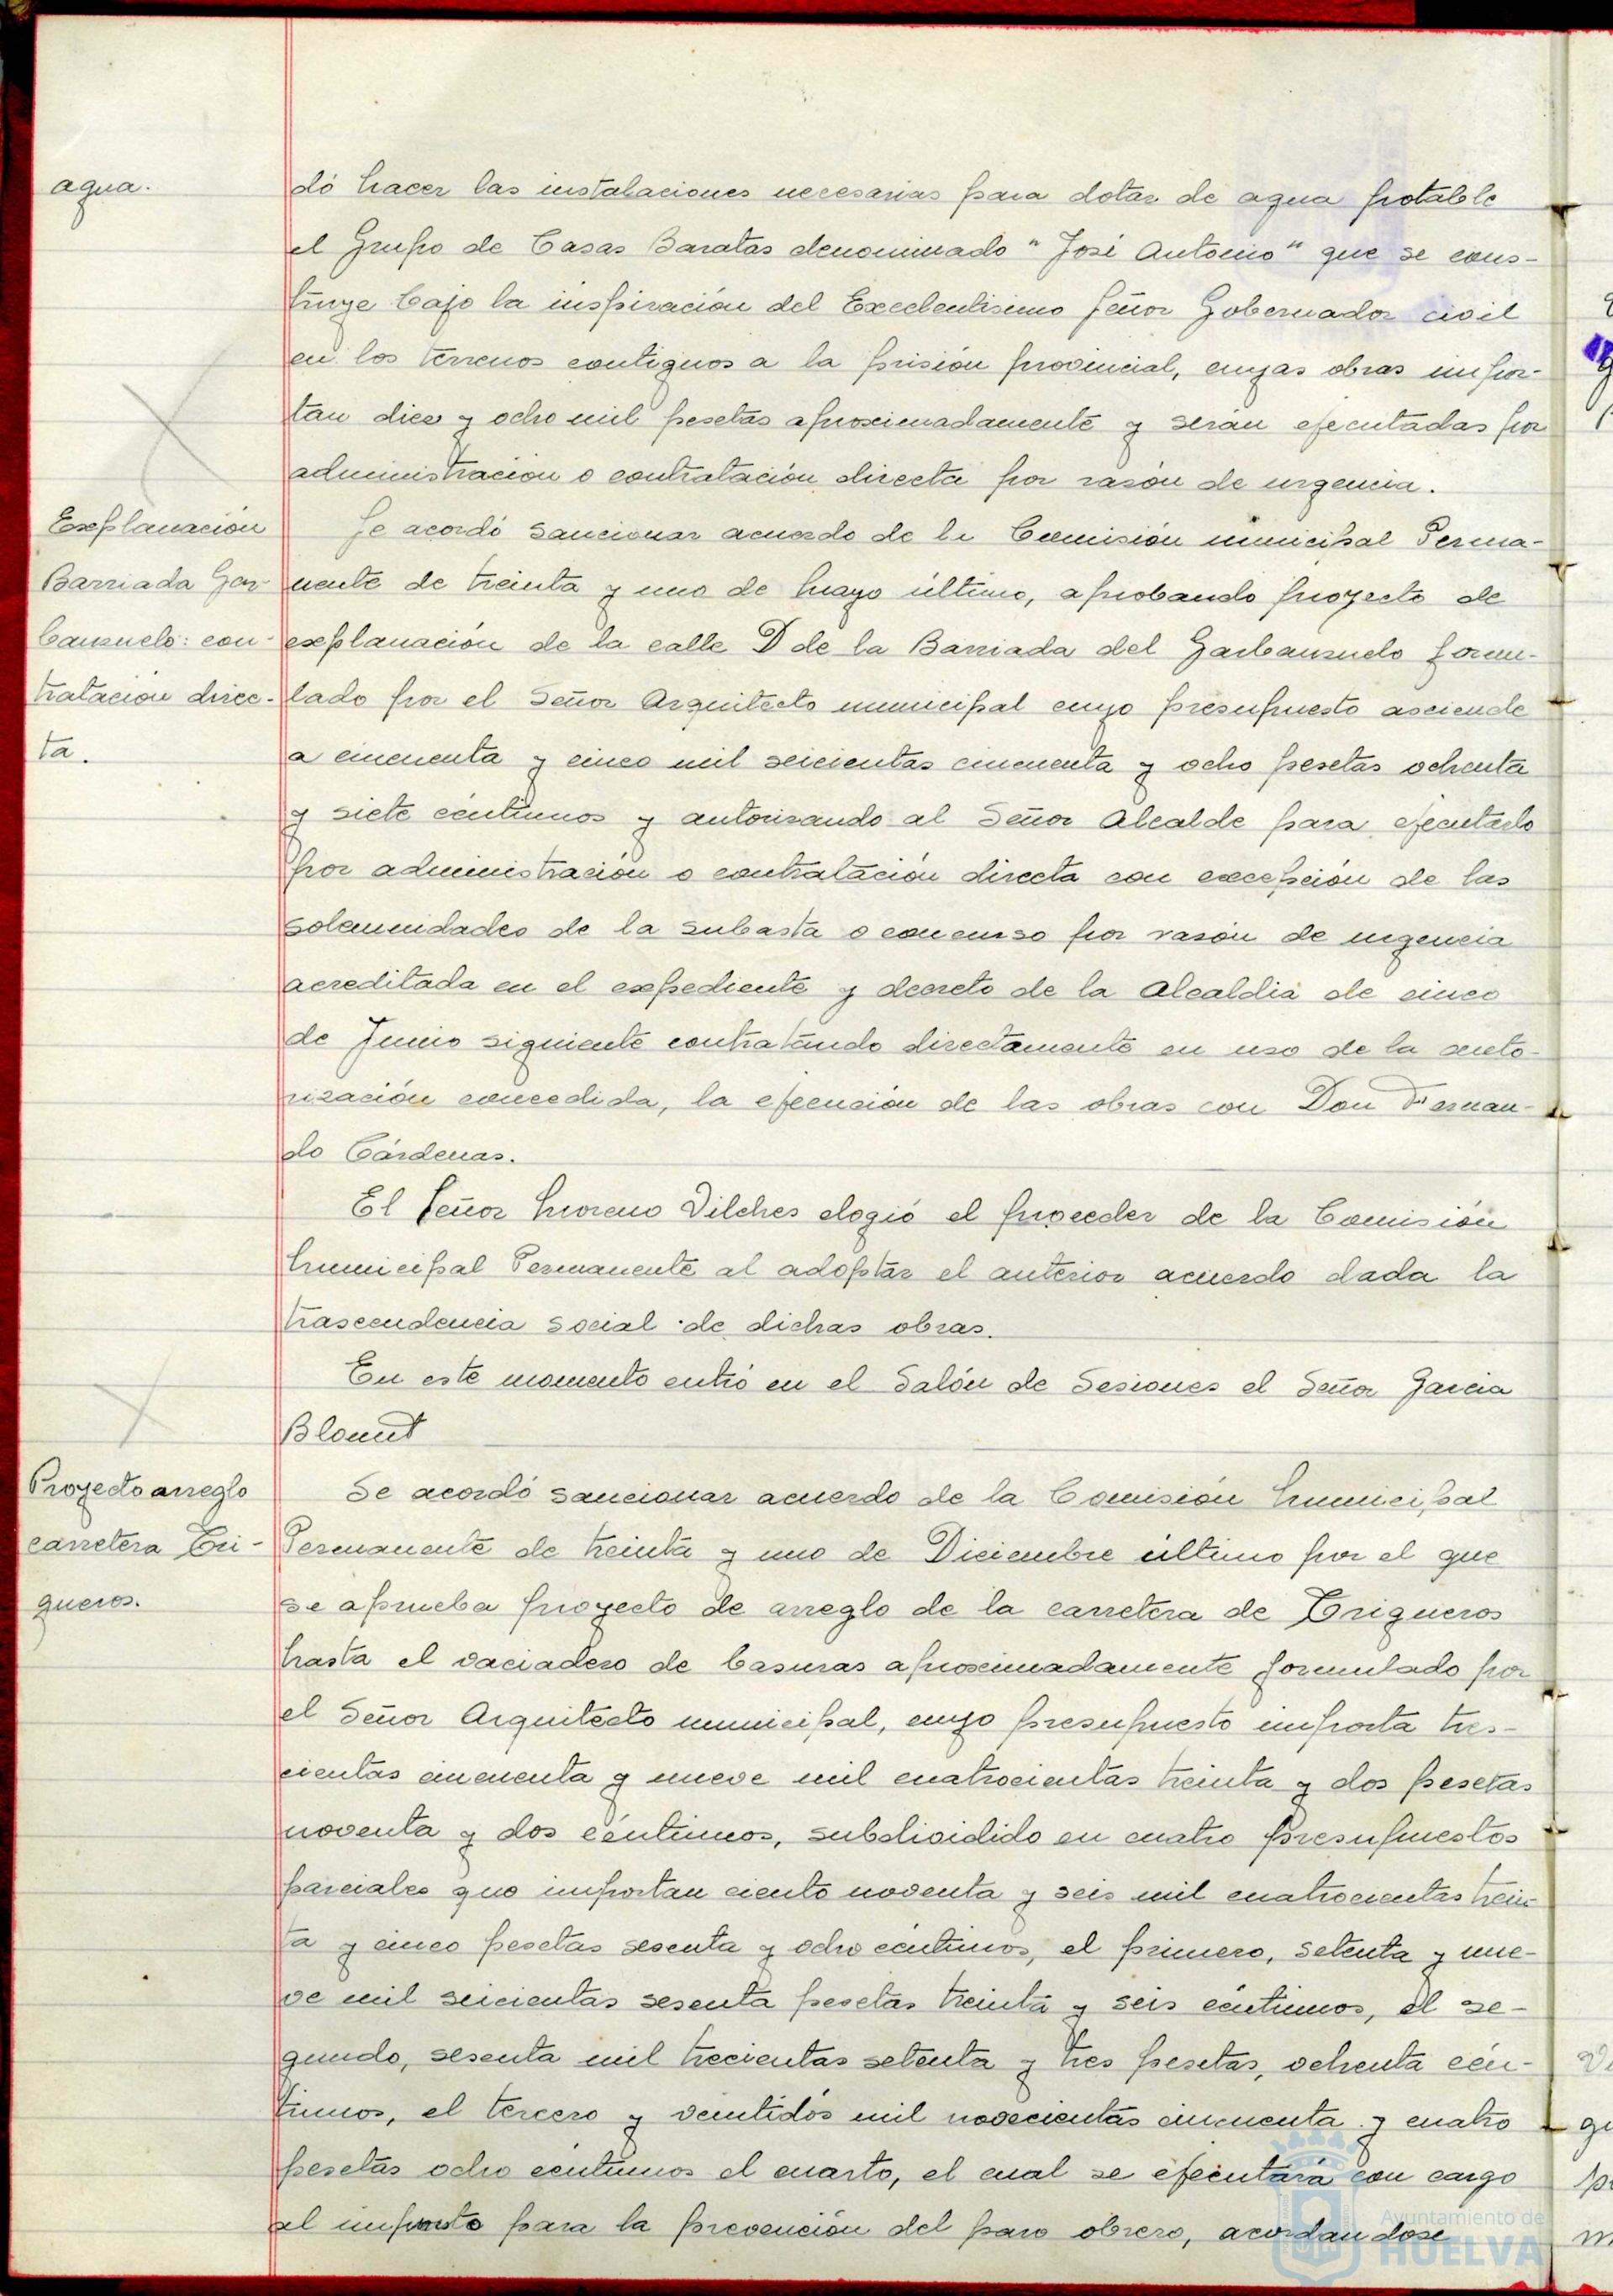 agua.
dó hacer las instalaciones necesarias para dotar de agua potable
el Grupo de Casas Baratas denominado "José Antonio" que se cons-
truye bajo la inspiración del Excelentisimo Señor Gobernador civil
en los terrenos contiguos a la prisión provincial, cuyas obras impor-
tan diez y ocho mil pesetas aproximadamente y serán ejecutadas por
administración o contratación directa por razón de urgencia.
Explanación
Barriada Gar-
banzuelo: con-
tratación direc-
ta.
Se acordó sancionar acuerdo de la Comisión municipal Perma-
nente de treinta y uno de Mayo último, aprobando proyecto de
explanación de la calle D de la Barriada del Garbanzuelo formu-
lado por el Señor Arquitecto municipal cuyo presupuesto asciende
a cincuenta y cinco mil seicientas cincuenta y ocho pesetas ochenta
y siete céntimos y autorizando al Señor Alcalde para ejecutarlo
por administración o contratación directa con excepción de las
solemnidades de la subasta o concurso por razón de urgencia
acreditada en el expediente y decreto de la Alcaldia de cinco
de Junio siguiente contratando directamente en uso de la auto-
rización concedida, la ejecución de las obras con Don Fernan-
do Cárdenas.
El Señor Moreno Vilches elogió el proceder de la Comisión
Municipal Permanente al adoptar el anterior acuerdo dada la
trascendencia social de dichas obras.
En este momento entró en el Salón de Sesiones el Señor Garcia
Blount
Proyecto arreglo
carretera Tri-
gueros.
Se acordó sancionar acuerdo de la Comisión Municipal
Permanente de treinta y uno de Diciembre último por el que
se aprueba proyecto de arreglo de la carretera de Trigueros
hasta el vaciadero de basuras aproximadamente formulado por
el Señor Arquitecto municipal, cuyo presupuesto importa tres-
cientas cincuenta y nueve mil cuatrocientas treinta y dos pesetas
noventa y dos céntimos, subdividido en cuatro presupuestos
parciales que importan ciento noventa y seis mil cuatrocientas trein-
ta y cinco pesetas sesenta y ocho céntimos, el primero, setenta y nue-
ve mil seicientas sesenta pesetas treinta y seis céntimos, el se-
gundo, sesenta mil trecientas setenta y tres pesetas, ochenta cén-
timos, el tercero y ventidós mil novecientas cincuenta y cuatro
pesetas ocho céntimos el cuarto, el cual se ejecutará con cargo
al impuesto para la prevención del paro obrero, acordandose
Ayuntamiento de
HUELVA